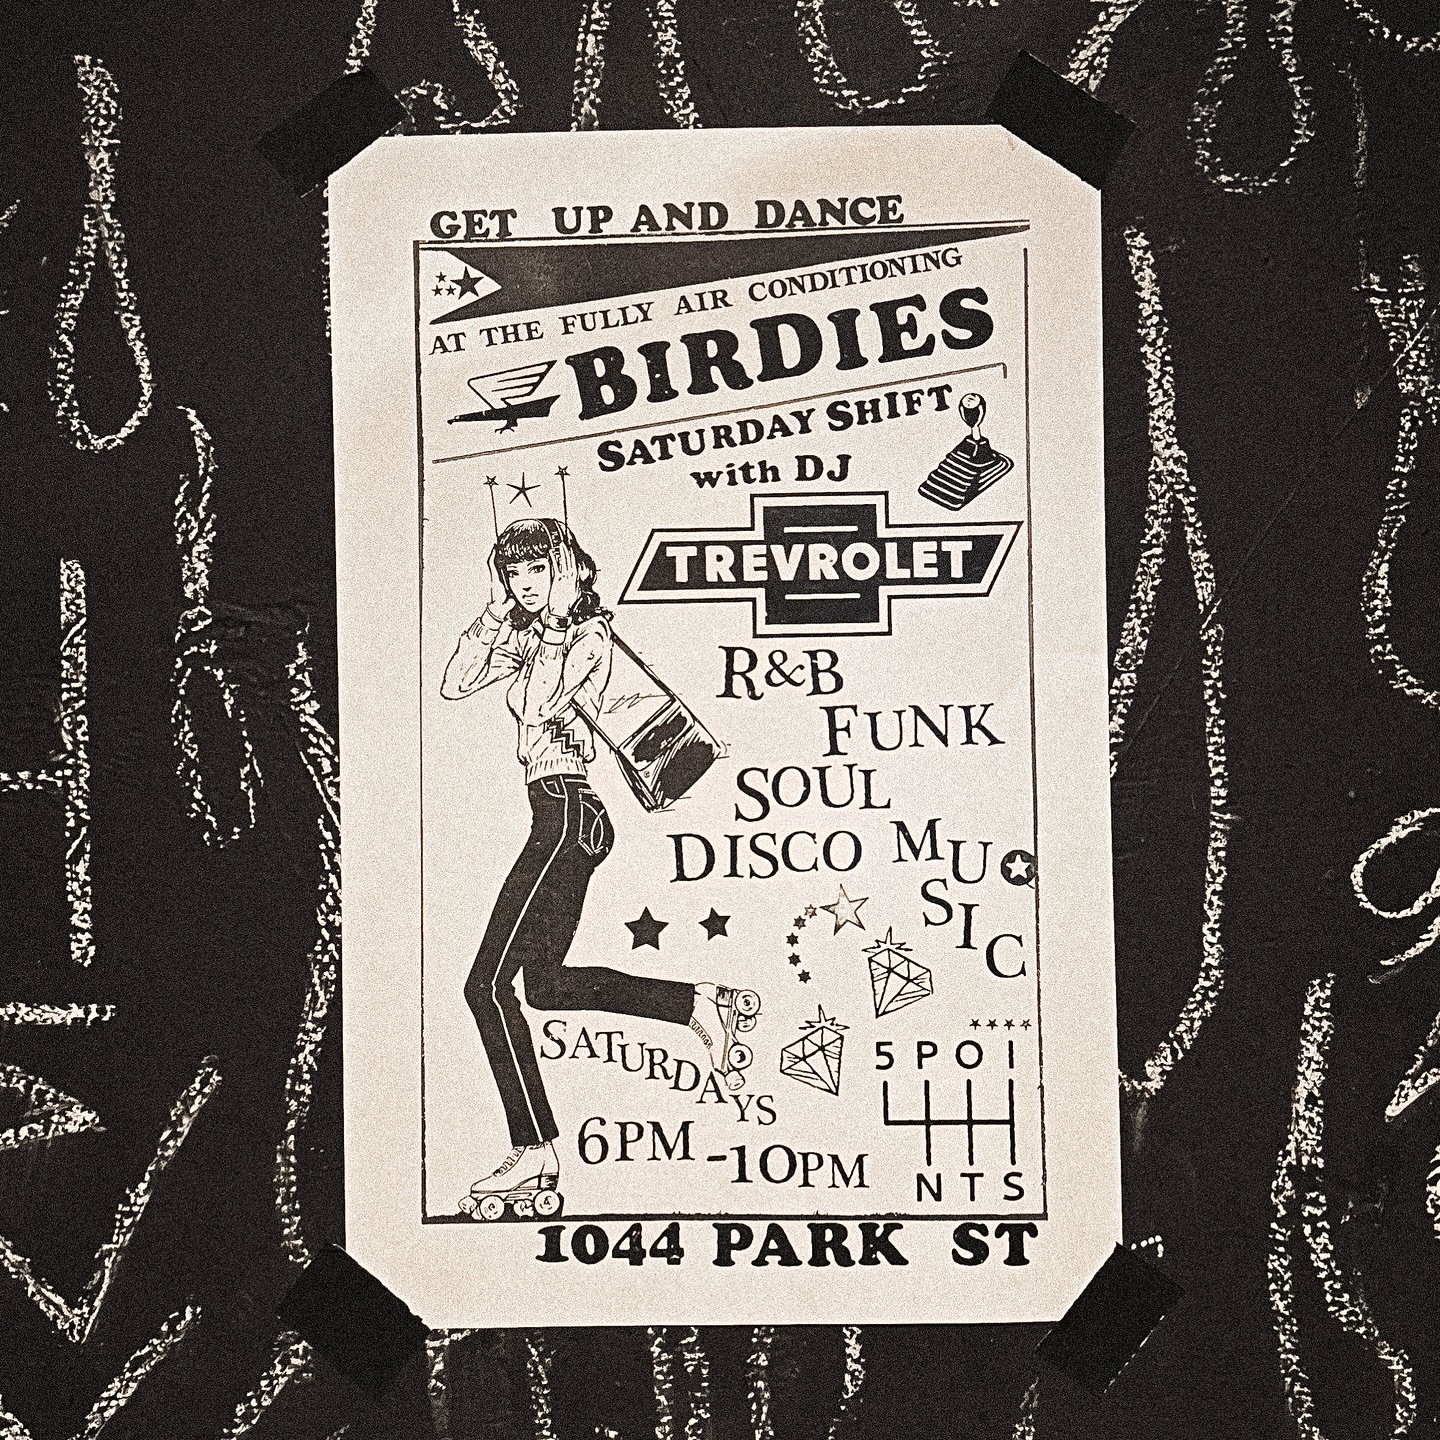 GET UP AND DANCE
AT THE FULLY AIR CONDITIONING
BIRDIES
SATURDAY SHIFT
with DJ
TREVROLET
R&B
FUNK
SOUL
DISCO MUSIC
SATURDAYS
6PM-10PM
5 POI
NTS
1044 PARK ST